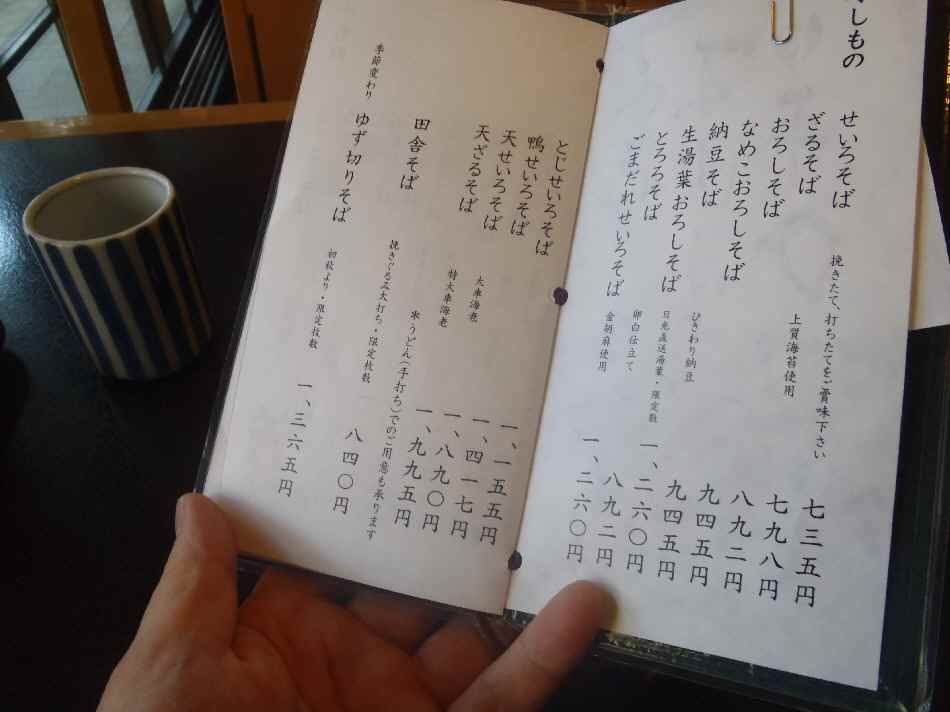 しもの
せいろそば 挽きたて、打ちたてをご賞味下さい 七三五円
ざるそば 上質海苔使用 七九八円
おろしそば 八九二円
なめこおろしそば 九四五円
納豆そば ひきわり納豆 九四五円
生湯葉おろしそば 日光直送湯葉・限定数 一、二六〇円
とろろそば 卵白仕立て 八九二円
ごまだれせいろそば 金胡麻使用 一、二六〇円
とじせいろそば 一、一五五円
鴨せいろそば 一、四一七円
天せいろそば 大車海老 一、八九〇円
天ざるそば 特大車海老 一、九九五円
＊うどん(手打ち)でのご用意も承ります
田舎そば 挽きぐるみ太打ち・限定枚数 八四〇円
季節変わり ゆず切りそば 初秋より・限定枚数 一、三六五円